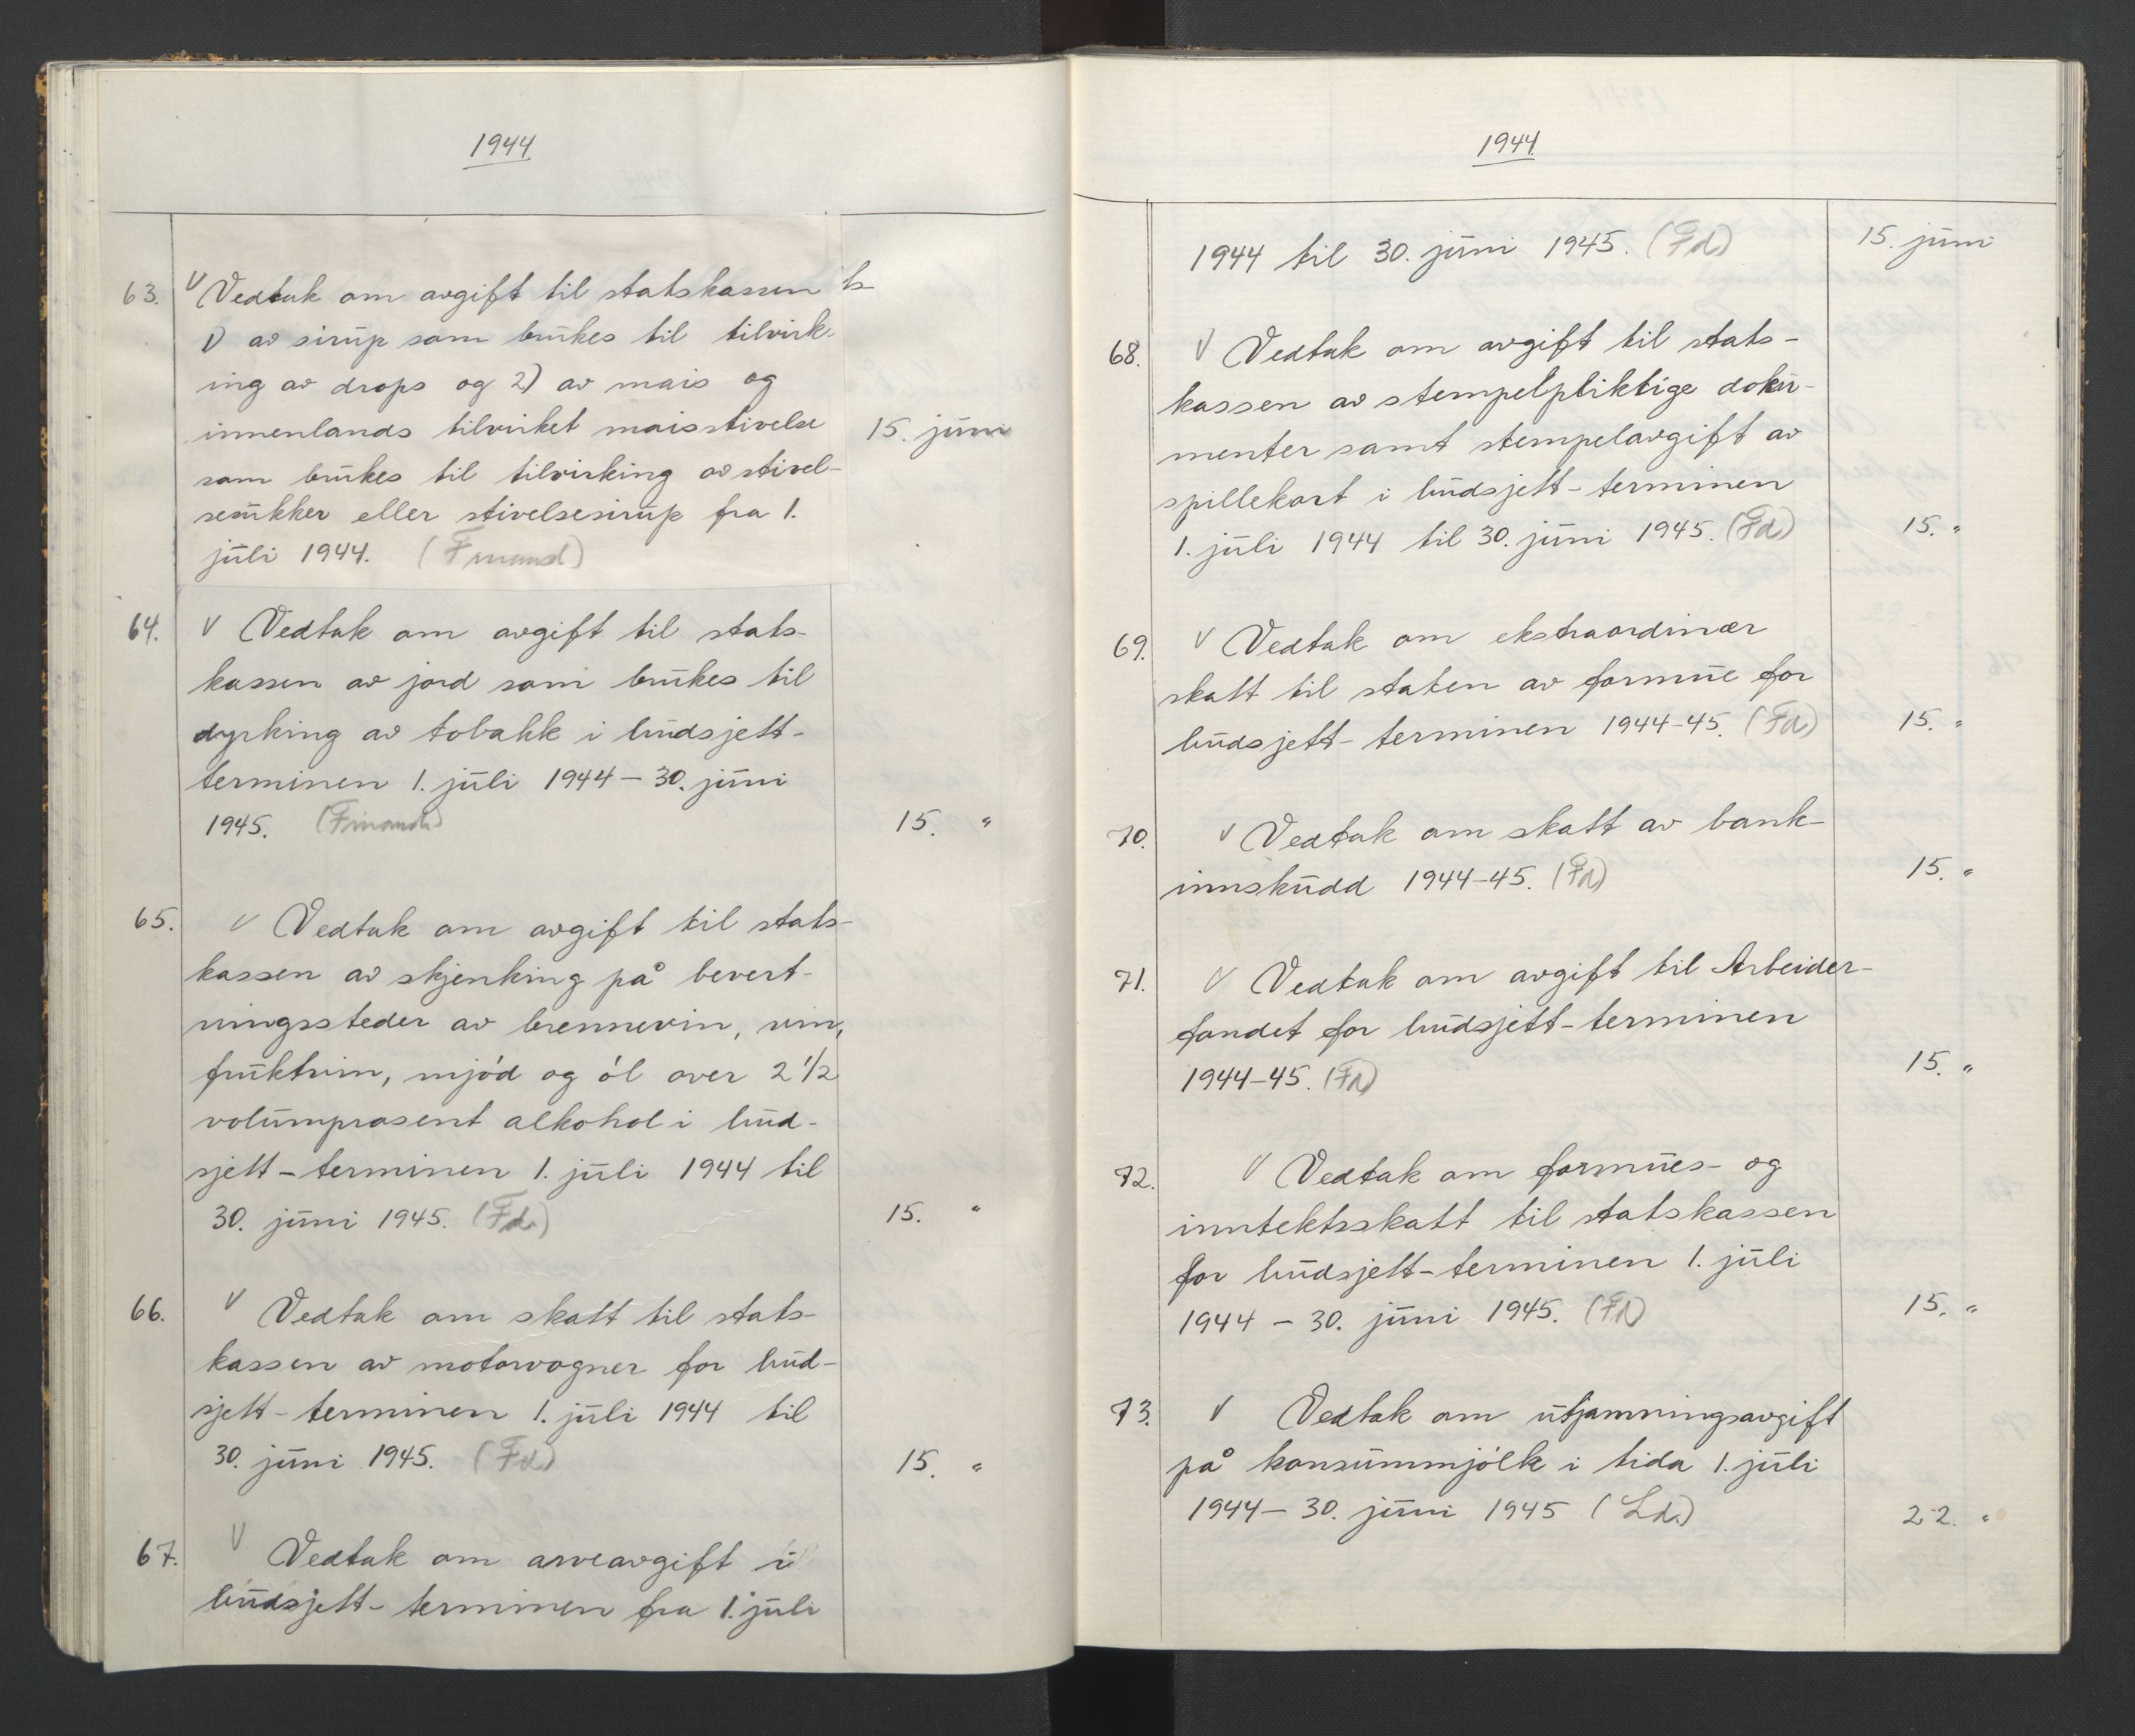 1944
63. V Vedtak om avgift til statskassen
1) av sirup som brukes til tilvirk-
ing av drops og 2) av mais og
innenlands tilvirket maisstivelse 15. juni
som brukes til tilvirking av stivel-
sesukker eller stivelsesirup fra 1.
juli 1944. (Finansd)
64. V Vedtak om avgift til stats-
kassen av jord som brukes til
dyrking av tobakk i budsjett-
terminen 1. juli 1944 - 30. juni
1945. (Finansd.) 15. "
65. V Vedtak om avgift til stats-
kassen av skjenking på bevert-
ningssteder av brennevin, vin,
fruktvin, mjód og ól over 2 1/2
volumprosent alkohol i bud-
sjett-terminen 1. juli 1944 til
30. juni 1945. (Fd.) 15. "
66. V Vedtak om skatt til stats-
kassen av motorvogner for bud-
sjett-terminen 1. juli 1944 til
30. juni 1945. (Fd) 15. "
67. V Vedtak om arveavgift i
budsjett-terminen fra 1. juli
1944
1944 til 30. juni 1945. (Fd) 15. juni
68. V Vedtak om avgift til stats-
kassen av stempelpliktige doku-
menter samt stempelavgift av
spillekort i budsjett-terminen
1. juli 1944 til 30. juni 1945. (Fd) 15. "
69. V Vedtak om ekstraordinær
skatt til staten av formue for
budsjett-terminen 1944-45. (Fd) 15. "
70. V Vedtak om skatt av bank-
innskudd 1944-45. (Fd) 15. "
71. V Vedtak om avgift til Arbeider-
fondet for budsjett-terminen
1944-45. (Fd) 15. "
72. V Vedtak om formues- og
inntektsskatt til statskassen
for budsjett-terminen 1. juli
1944 - 30. juni 1945. (Fd) 15. "
73. V Vedtak om utjamningsavgift
på konsummjólk i tida 1. juli
1944 - 30. juni 1945 (Ld.) 22. "